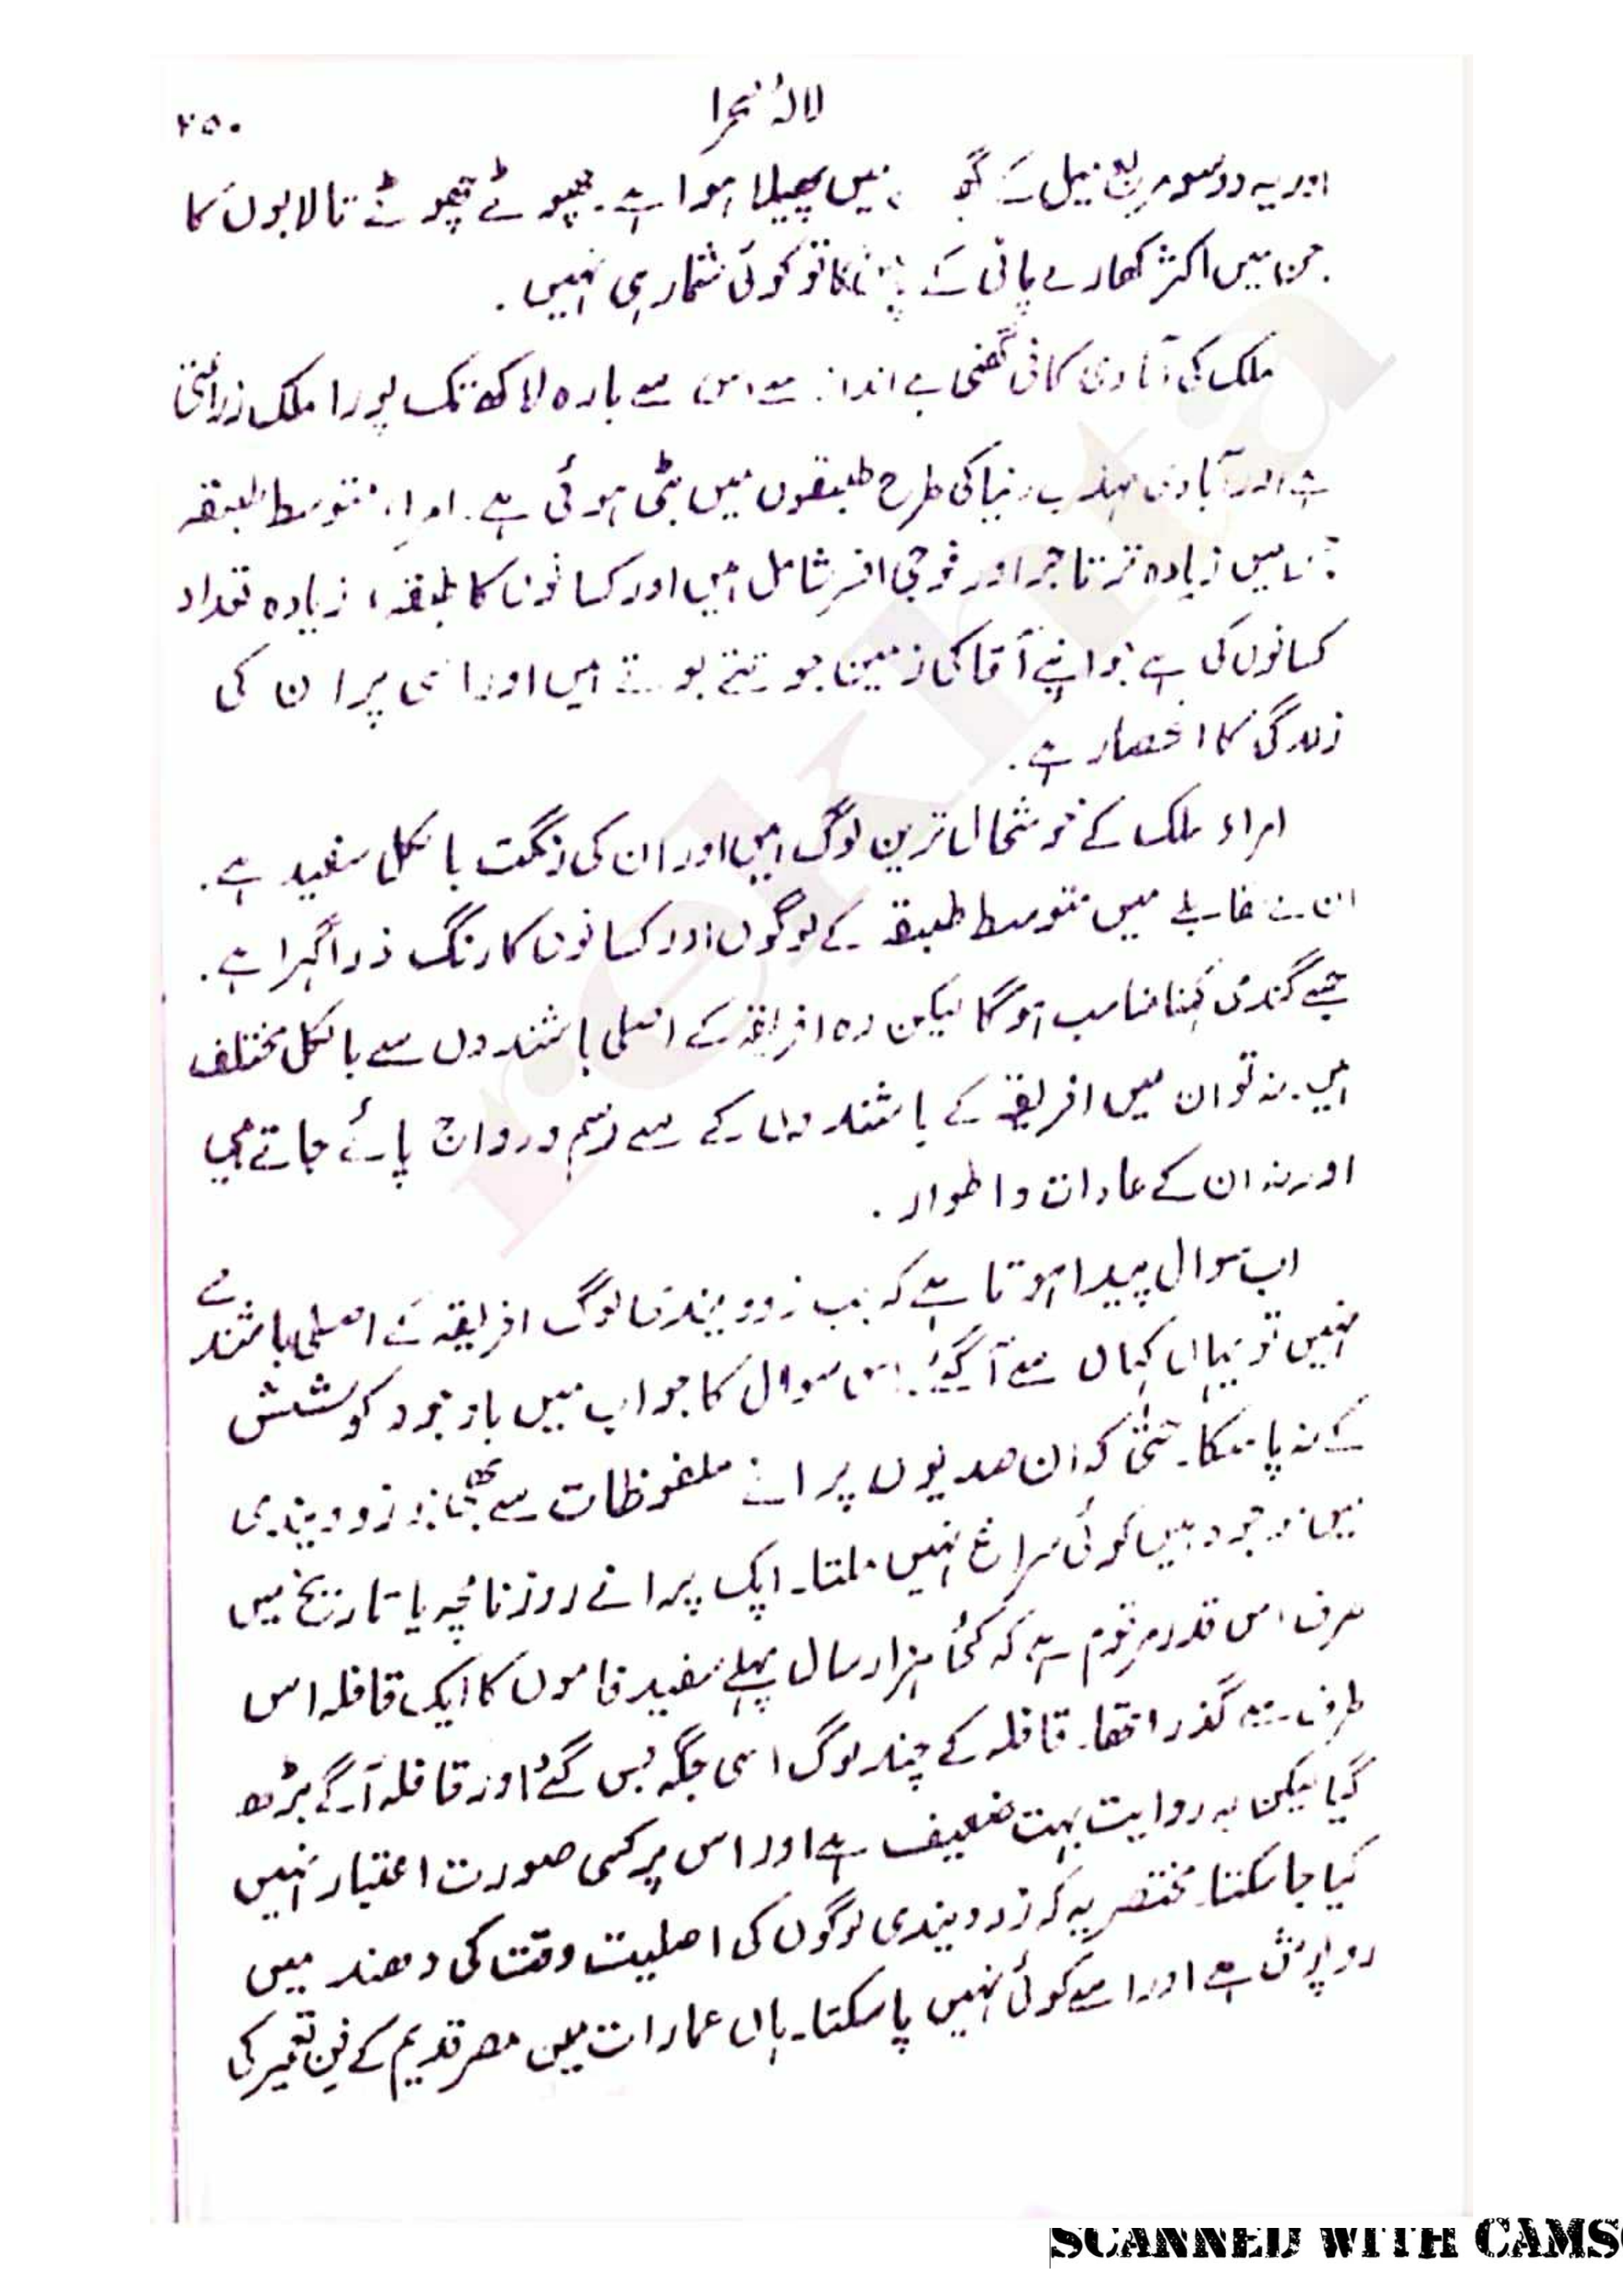 لالۂ صحرا
۲۵۰
اور یہ دو سو مربع میل کے میں پھیلا ہوا ہے۔ چھوٹے چھوٹے تالابوں کا
جن میں اکثر کھارے پانی کے کا تو کوئی شمار ہی نہیں۔
ملک کی آبادی کافی گھنی ہے اندازے سے بارہ لاکھ تک پورا ملک زراعتی
ہے اور آبادی مہذب دنیا کی طرح طبقوں میں بٹی ہوئی ہے۔ امراء، متوسط طبقہ
جن میں زیادہ تر تاجر اور فوجی افسر شامل ہیں اور کسانوں کا طبقہ، زیادہ تعداد
کسانوں کی ہے جو اپنے آقا کی زمین جوتتے بوتے ہیں اور اسی پر ان کی
زندگی کا انحصار ہے۔
امراء ملک کے خوشحال ترین لوگ ہیں اور ان کی رنگت بالکل سفید ہے۔
ان کے مقابلے میں متوسط طبقہ کے لوگوں اور کسانوں کا رنگ ذرا گہرا ہے۔
جسے گندمی کہنا مناسب ہوگا لیکن وہ افریقہ کے اصلی باشندوں سے بالکل مختلف
ہیں۔ نہ تو ان میں افریقہ کے باشندوں کے سے رسم و رواج پائے جاتے ہیں
اور نہ ان کے عادات و اطوار۔
اب سوال پیدا ہوتا ہے کہ جب زوویندی لوگ افریقہ کے اصلی باشندے
نہیں تو یہاں کہاں سے آ گئے۔ اس سوال کا جواب میں باوجود کوشش
کے نہ پا سکا۔ حتیٰ کہ ان صدیوں پرانے ملفوظات سے بھی جو زوویندی
میں موجود ہیں کوئی سراغ نہیں ملتا۔ ایک پرانے روزنامچہ یا تاریخ میں
صرف اس قدر مرقوم ہے کہ کئی ہزار سال پہلے سفید فاموں کا ایک قافلہ اس
طرف سے گذرا تھا۔ قافلہ کے چند لوگ اسی جگہ بس گئے اور قافلہ آگے بڑھ
گیا لیکن یہ روایت بہت ضعیف ہے اور اس پر کسی صورت اعتبار نہیں
کیا جا سکتا۔ مختصر یہ کہ زوویندی لوگوں کی اصلیت وقت کی دھند میں
روپوش ہے اور اسے کوئی نہیں پا سکتا۔ ہاں عمارات میں مصر قدیم کے فن تعمیر کی
SCANNED WITH CAMS